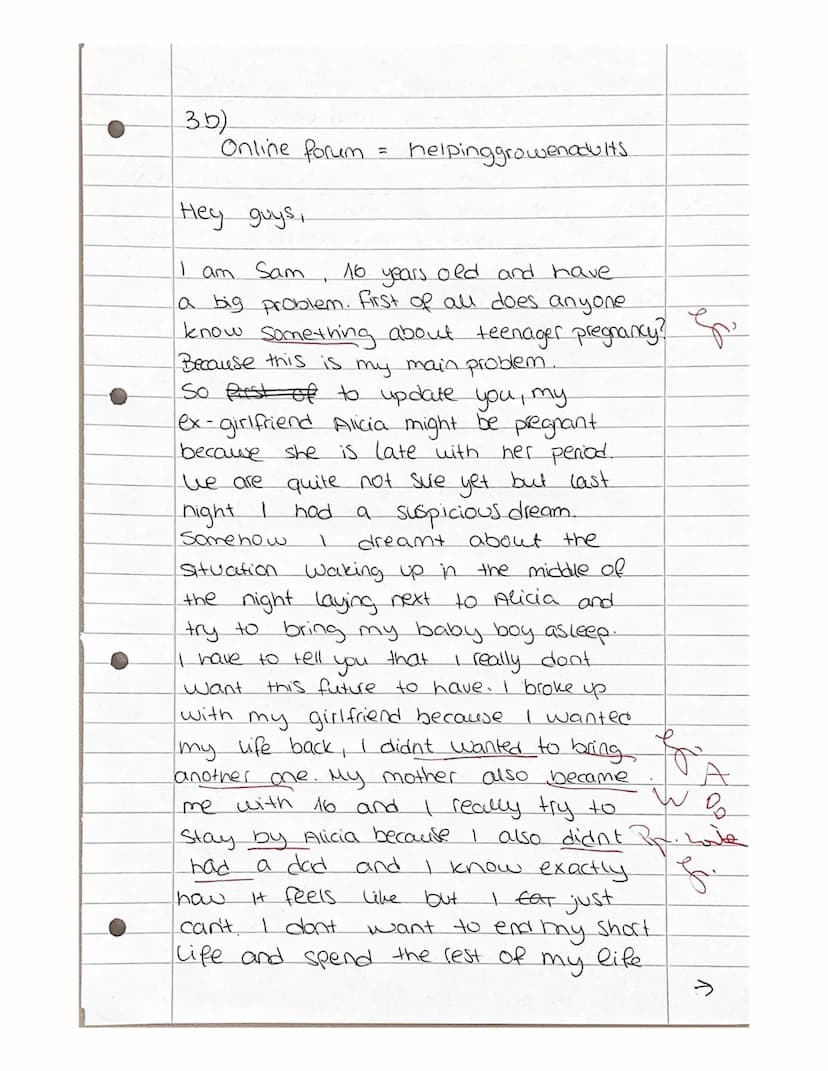 3b)
Online forum = helpinggrowenadults
Hey guys,
I am Sam, 16 years old and have
a big problem. First of all does anyone
know something about teenager pregnancy?
Because this is my main problem.
So first of to update you, my
ex-girlfriend Alicia might be pregnant
because she is late with her period.
We are quite not sure yet but last
night I had a suspicious dream.
Somehow I dreamt about the
situation waking up in the middle of
the night laying next to Alicia and
try to bring my baby boy asleep.
I have to tell you that I really dont
want this future to have. I broke up
with my girlfriend because I wanted
my life back, I didnt wanted to bring
another one. My mother also became
A
me with 16 and I really try to
W
stay by Alicia because I also didnt
had a dad and I know exactly
how it feels like but I just
can't. I dont want to end my short
life and spend the rest of my life
→